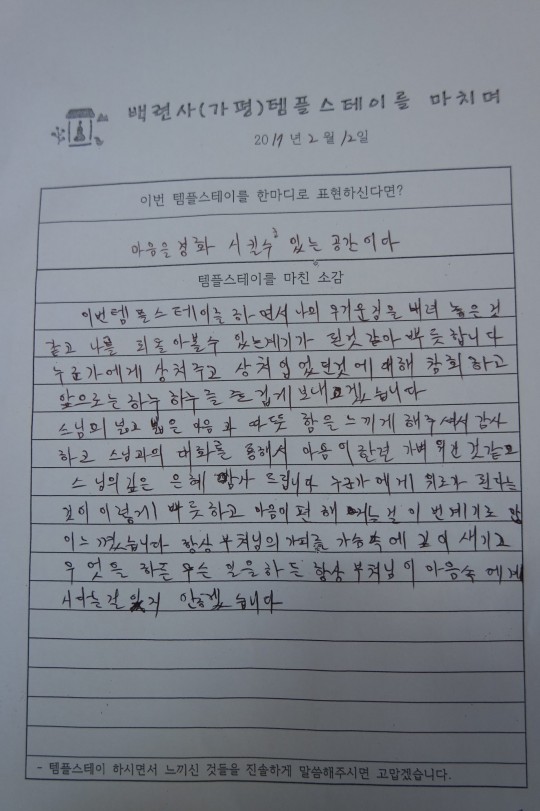 백련사(가평)템플스테이를 마치며
2019년 2월 12일
이번 템플스테이를 한마디로 표현하신다면?
마음을 정화 시킬수 있는 공간이다
템플스테이를 마친 소감
이번템플스테이를 하면서 나의 무거운짐을 내려 놓은 것
같고 나를 되돌아볼수 있는계기가 된것 같아 뿌듯합니다
누군가에게 상처주고 상처입었던것에 대해 참회하고
앞으로는 하루 하루를 즐겁게 보내겠습니다
스님의 넓고 넓은 마음과 따뜻함을 느끼게 해주셔서 감사
하고 스님과의 대화를 통해서 마음이한련 가벼워진것같고
스님의깊은 은혜 감사 드립니다 누군가에게 위로가 된다는
것이 이렇게 뿌듯하고 마음이편해 지는걸 이번계기로 많
이느꼈습니다 항상 부처님의 가피를 가슴속에 깊이 새기고
무엇을 하든 무슨 일을하든 항상 부처님이 마음속에게
시다는걸 잊지 안하겠습니다
- 템플스테이 하시면서 느끼신 것들을 진솔하게 말씀해주시면 고맙겠습니다.